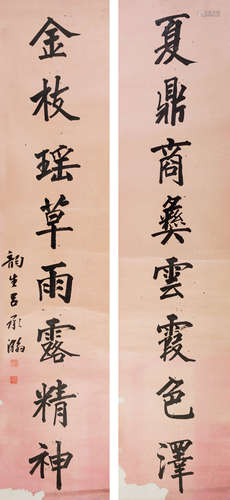 夏鼎商彝雲霞色澤
金枝瑶草雨露精神
韵生吕承瀚